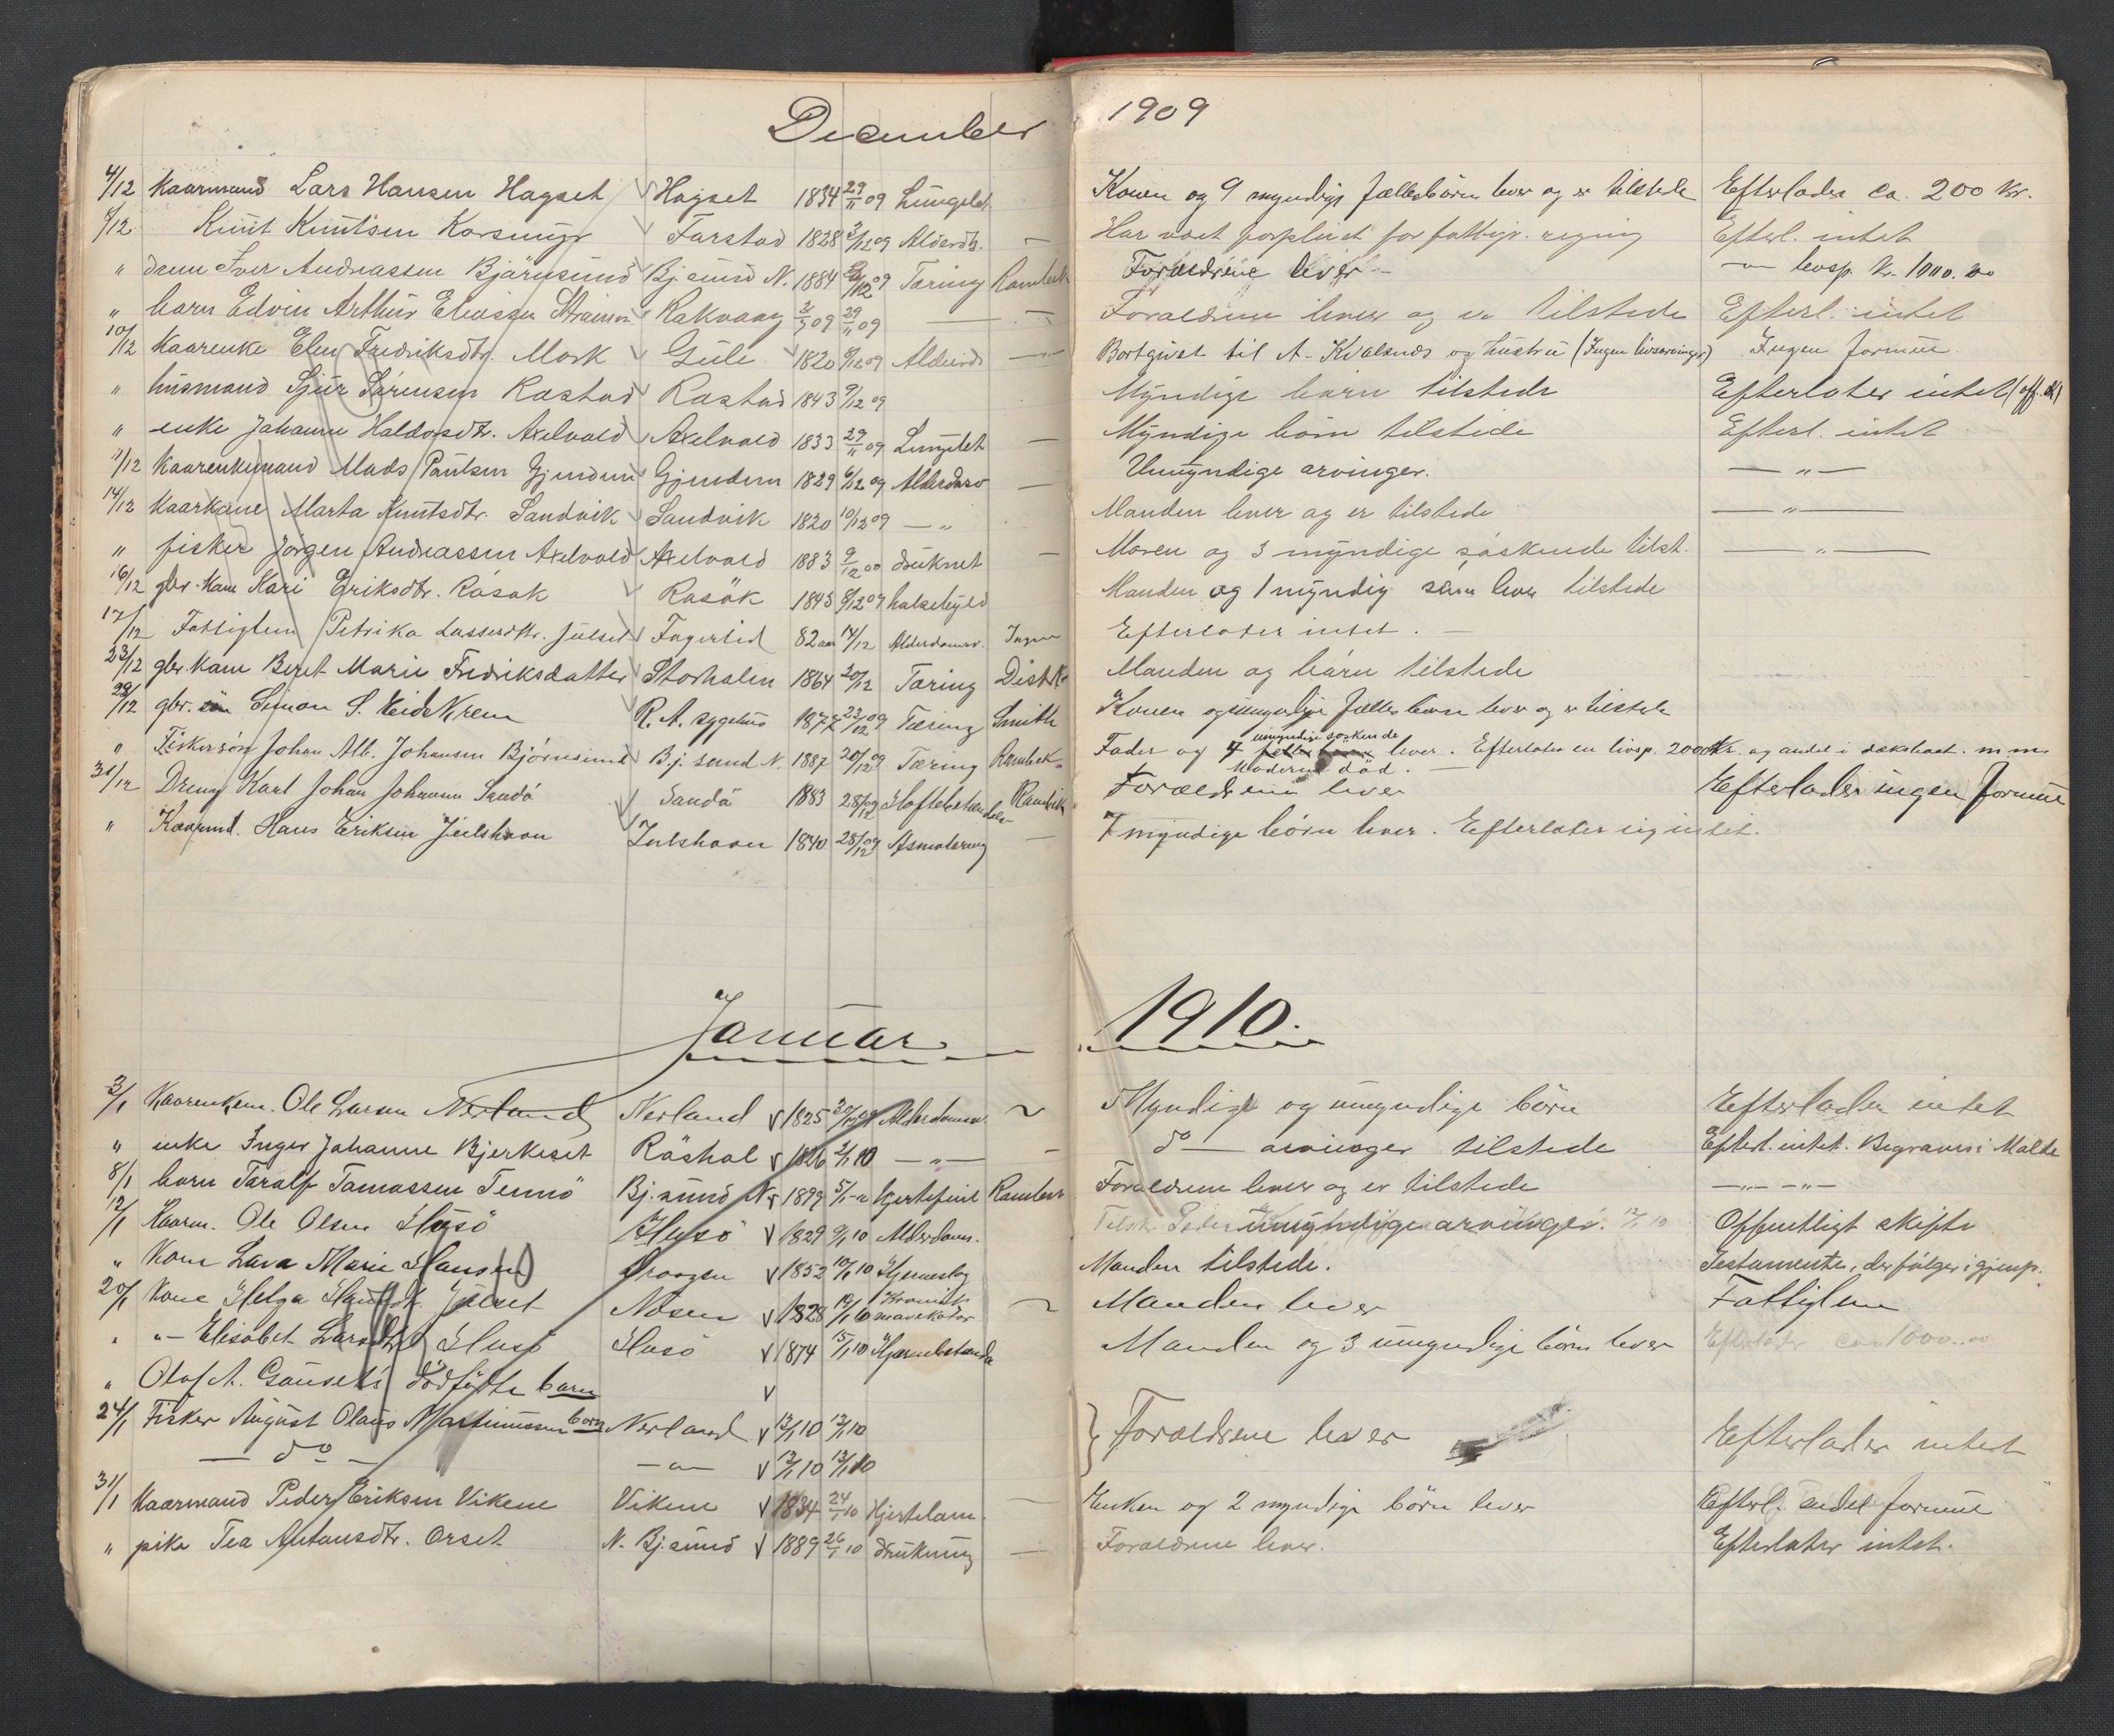 December 1909
4/12 Kaarmand Lars Hansen Hagset Hagset 1834 29/11 09 Lungebet. Konen og 9 myndige fællesbörn lever og er tilstede Efterlader ca. 200 kr.
6/12 Knut Knutsen Korsmyr Farstad 1828 3/12 09 Alderdh. — Har vært forpleiet for fattigv. regning Efterl. intet
" dreng Iver Andreassen Björnsund Bj.sund N. 1884 Tæring Rambech Forældrene lever — — livsp. kr. 1000.00
" barn Edvin Arthur Eliassen Rakvaag 2/7 09 29/11 09 — — Forældrene lever og er tilstede Efterl. intet
10/12 Kaarenke Elen Fredriksdtr. Mork Gule 1820 8/12 09 Alderds — Bortgivet til A. Kvalsnes og hustru (Ingen livsarvinger) Ingen formue
" husmand Sjur Sörensen Rastad Rastad 1843 9/12 09 Myndige barn tilstede Efterlater intet (off. sk)
" enke Johanne Haldorsdtr. Axelvold Axelvold 1833 29/11 09 Lungebet — Myndige börn tilstede Efterl. intet
11/12 Kaarenkemand Mads Paulsen Gjendem Gjendem 1829 6/12 09 Alderdsv — Umyndige arvinger. — " —
14/12 Kaarkone Marta Knutsdtr. Sandvik Sandvik 1820 10/12 09 — " Manden lever og er tilstede — " —
" fisker Jörgen Andreassen Axelvold Axelvold 1883 9/12 00 druknet — Moren og 3 myndige söskende tilst. — " —
16/12 gbr. kone Kari Eriksdtr. Rösök Rösök 1845 8/12 09 halsebyld Manden og 1 myndig sön lever tilstede
17/12 Fattiglem Petrika Lassesdtr. Julset Fugerlid 82 aar 14/12 Alderdomsv. Ingen Efterlater intet. —
23/12 gbr. kone Beret Marie Fredriksdatter Storholm 1864 20/12 Tæring Distr. Manden og börn tilstede
28/12 gbr. Simon S. Eidskrem R. A. sygehus 1877 23/12 09 Tæring Smith Konen og umyndige fællesbörn lever og er tilstede
" Fiskersön Johan Alb. Johansen Björnsund Bj. sund N. 1887 20/12 09 Tæring Rambek. Fader og 4 umyndige søsken de lever. Efterlater en livsp. 2000 kr. og andel i m.m.
Moderen död. —
31/12 Dreng Karl Johan Johansen Sandö Sandö 1883 28/12 09 Rambek Forældrene lever Efterlader ingen formue
" Kaarmd. Hans Eriksen Julshavn Julshavn 1840 28/12 09 — 7 myndige börn lever. Efterlater sig intet.
Januar 1910.
3/1 Kaarenkem. Ole Larsen Nerland Nerland 1825 Alderdomsv. Myndige og umyndige börn Efterlader intet
" enke Inger Johanne Bjerkeset Röshol 1826 2/1 10 — " — — do — arvinger tilstede Efterl. intet. Begraves i Molde
8/1 barn Toralf Tomassen Ternö Bj.sund N. 1899 5/1 - " hjertefeil Rambech Forældrene lever og er tilstede — " — " —
12/1 Kaarm. Ole Olsen Husö Husö 1829 9/1 10 Alderdoms. umyndige arvinger. 12/1 10 Offentligt skifte
" Kone Lava Marie Hansen 1852 10/1 10 Hjerneslag Manden tilstede. Testamente, der fölger i gjenp.
20/1 Kone Helga Julset Nösen 1828 14/1 10 Kronisk mavekatar Manden lever Fattiglem
" " — Elisabet Larsdtr. Husö Husö 1874 15/1 10 Manden og 3 umyndige börn lever Efterlader ca 1000.00
" Olaf A. Gauseths dödfödte barn
24/1 Fisker August Olaus Martinussens barn Nerland 12/1 10 13/1 10 Forældrene lever Efterlader intet
— do — — " — 12/1 10 13/1 10
31/1 Kaarmand Peder Eriksen Vikene Vikene 1834 24/1 10 Hjertelam. — Enken og 2 myndige börn lever Efterl. endel formue
" pike Tea Antonsdtr. Orset N. Bj.sund 1889 26/1 10 drukning — Forældrene lever. Efterlater intet.